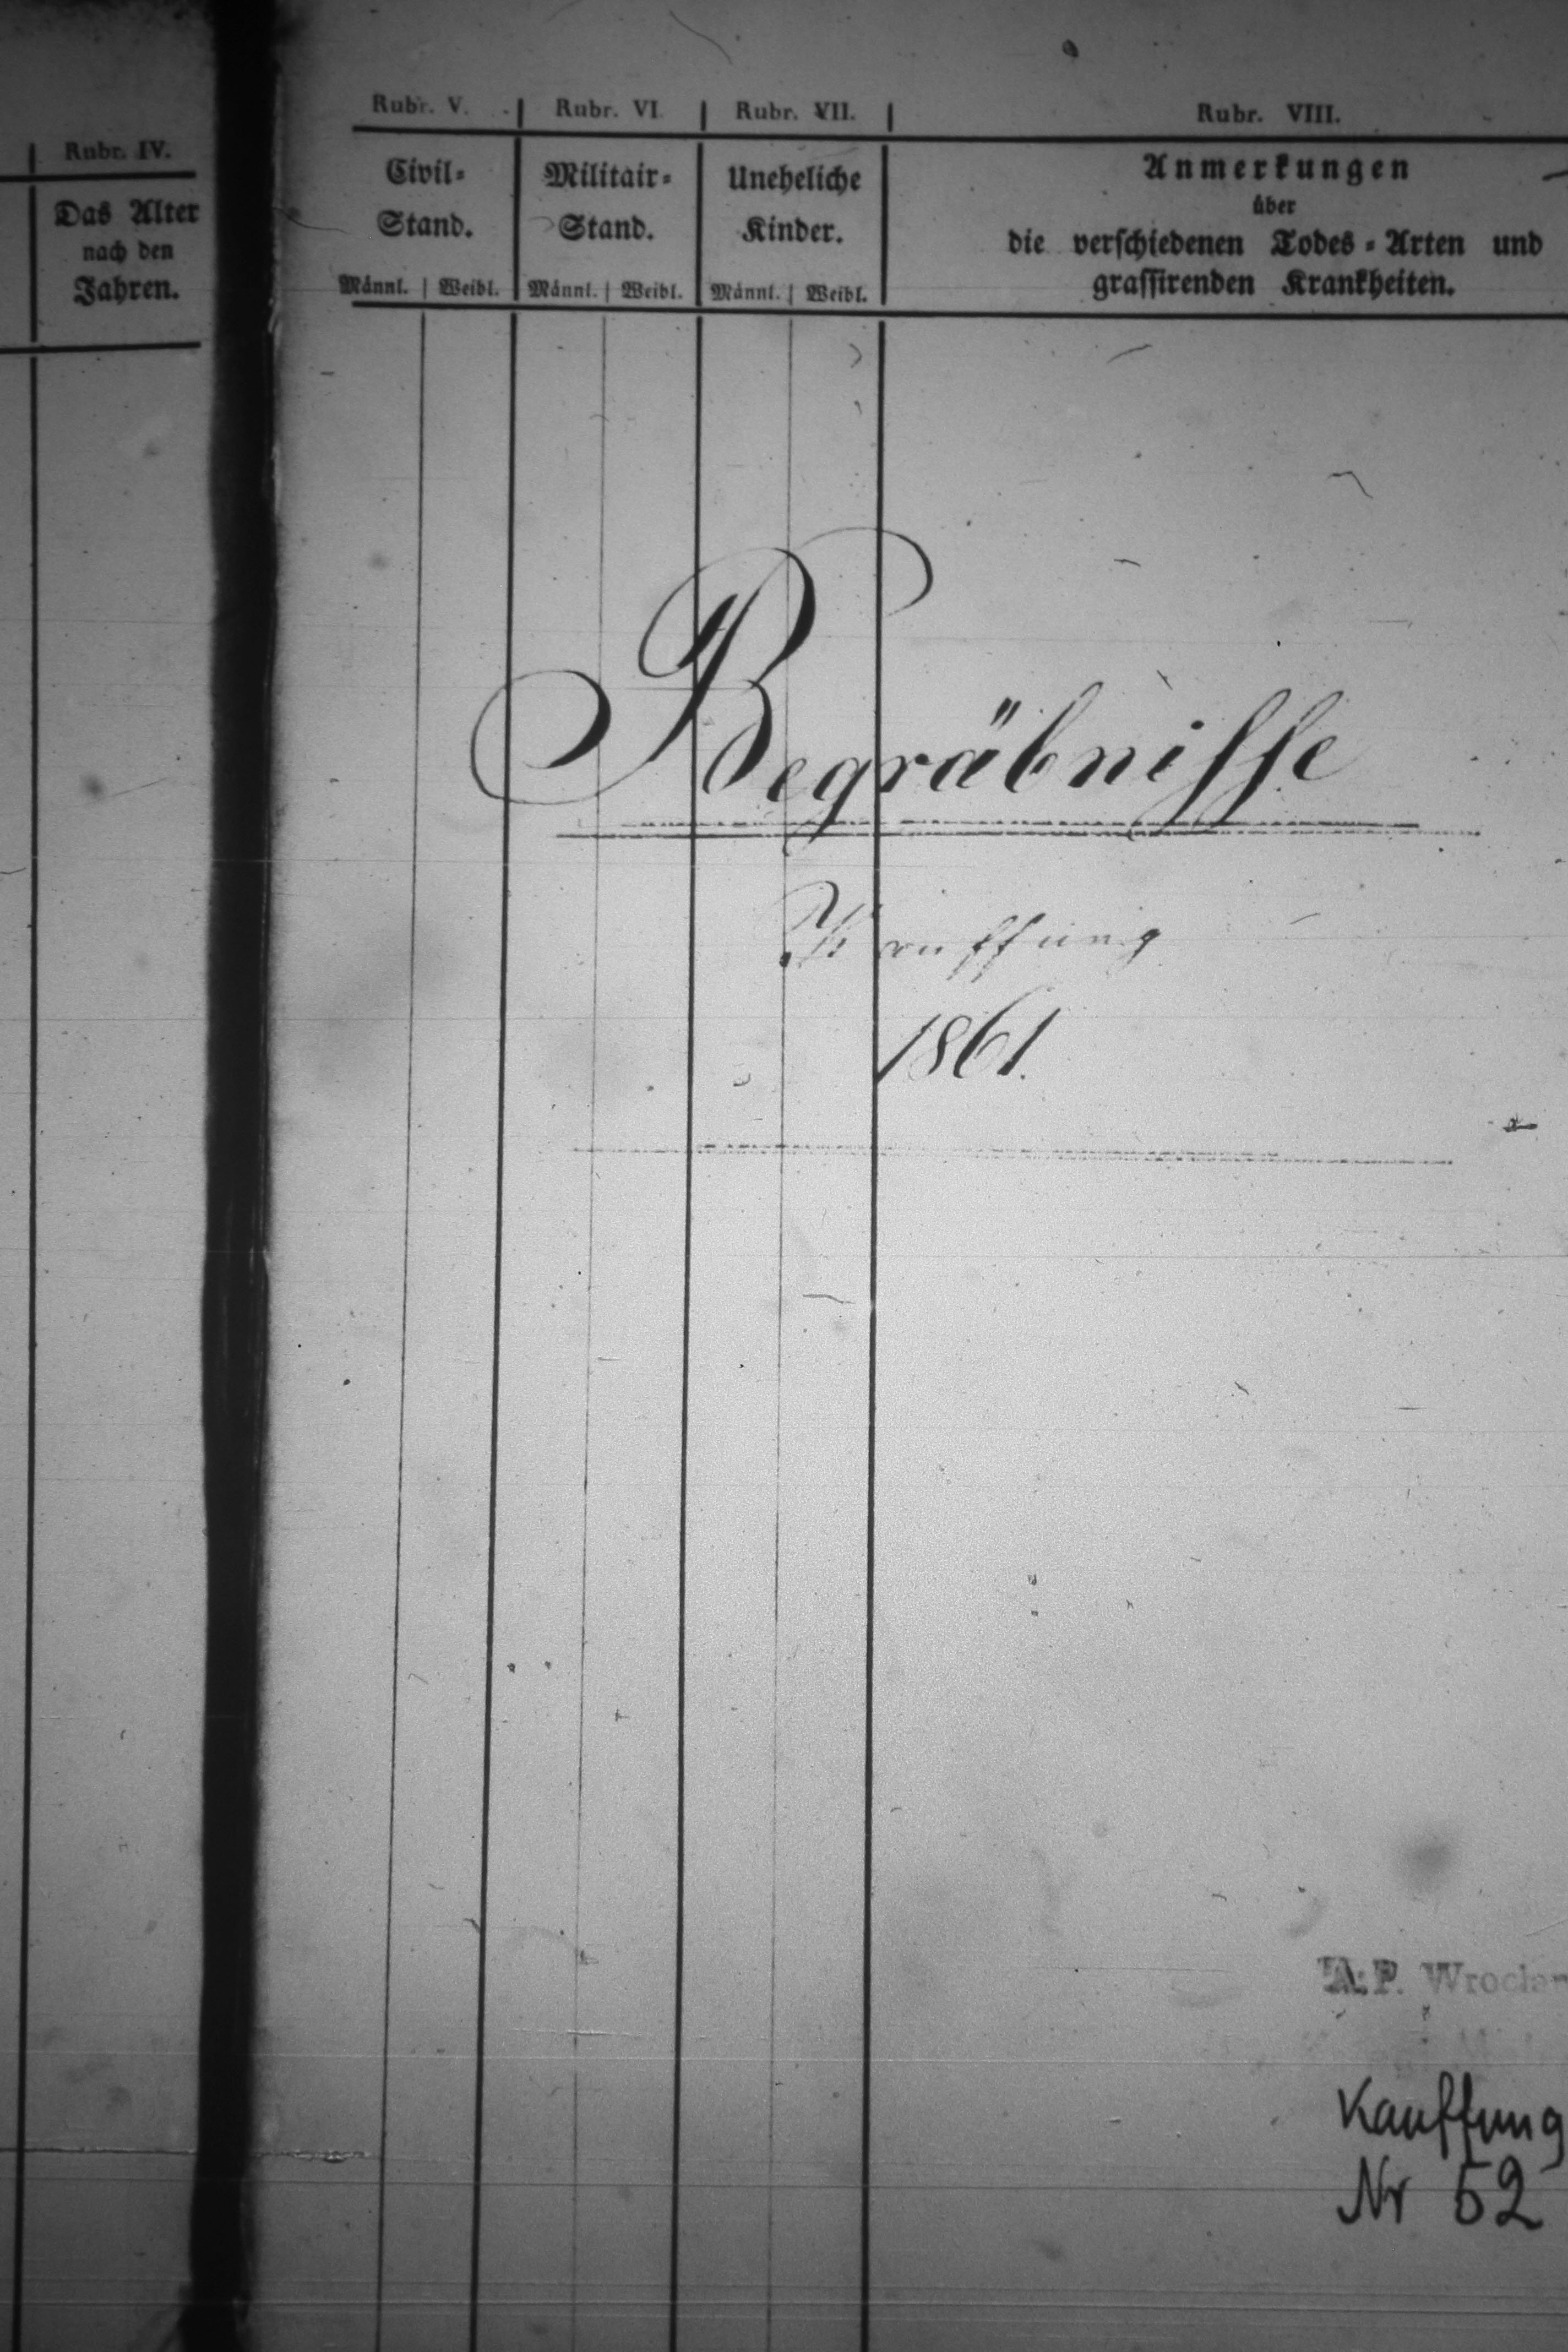 Rubr. IV.
Das Alter
nach den
Jahren.
Rubr. V.
Civil-
Stand.
Männl. | Weibl.
Rubr. VI.
Militair-
Stand.
Männl. | Weibl.
Rubr. VII.
Uneheliche
Kinder.
Männl. | Weibl.
Rubr. VIII.
Anmerkungen
über
die verschiedenen Todes-Arten und
grassirenden Krankheiten.
Begräbnisse
Kauffung
1861.
A.P. Wrocław
Kauffung
Nr 52